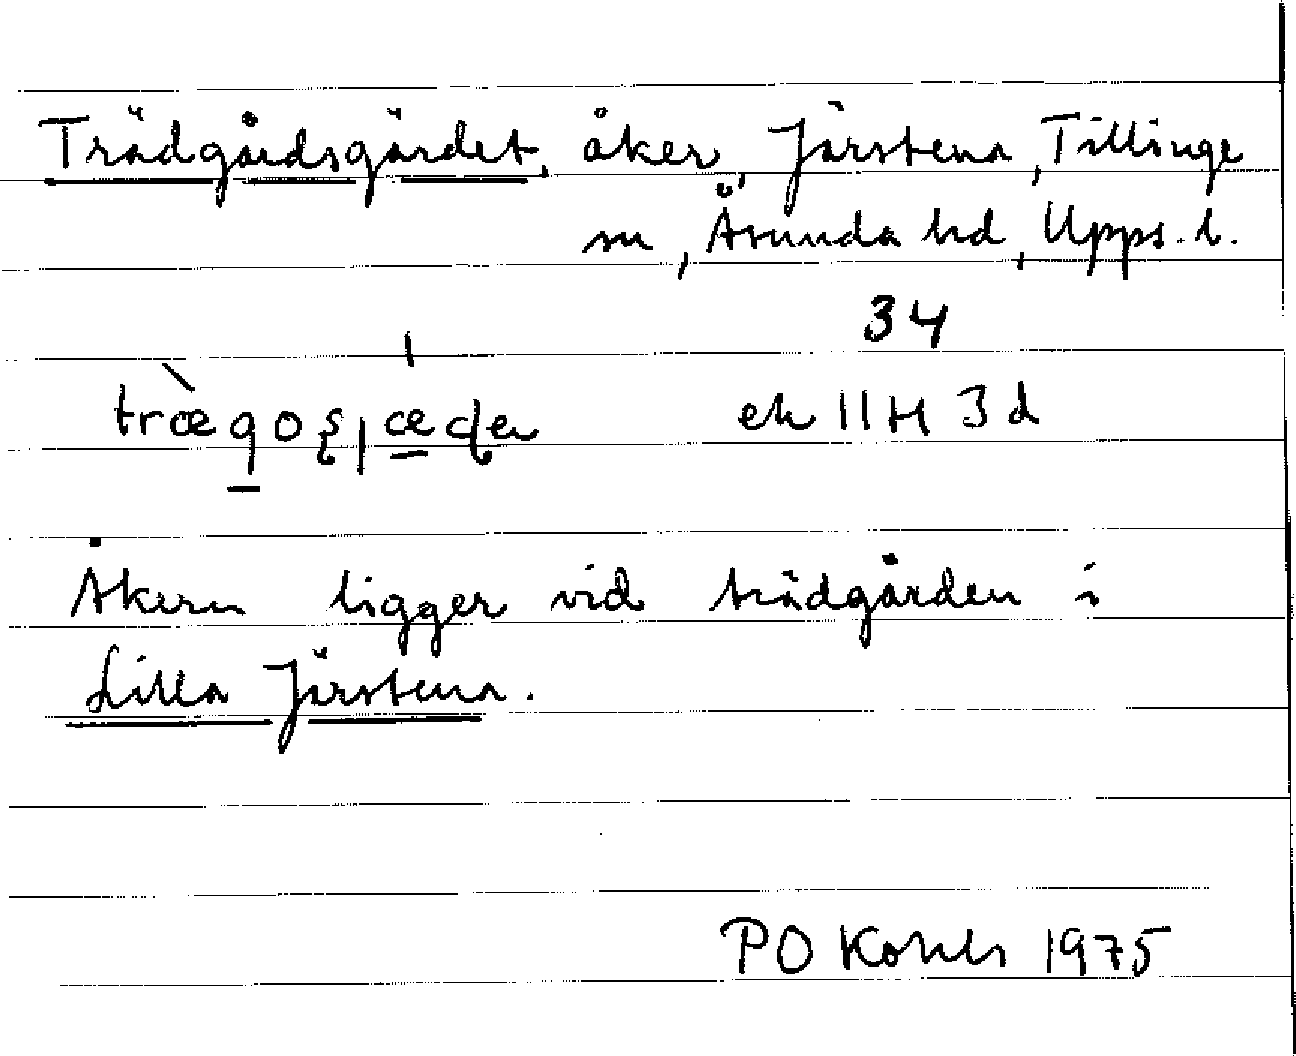 Trädgårdsgärdet, åker, Järstena, Tillinge
sn, Åsunda hd, Upps. l.
34
ek 11H 3d
Åkern ligger vid trädgården i
Lilla Järstena.
PO 1975